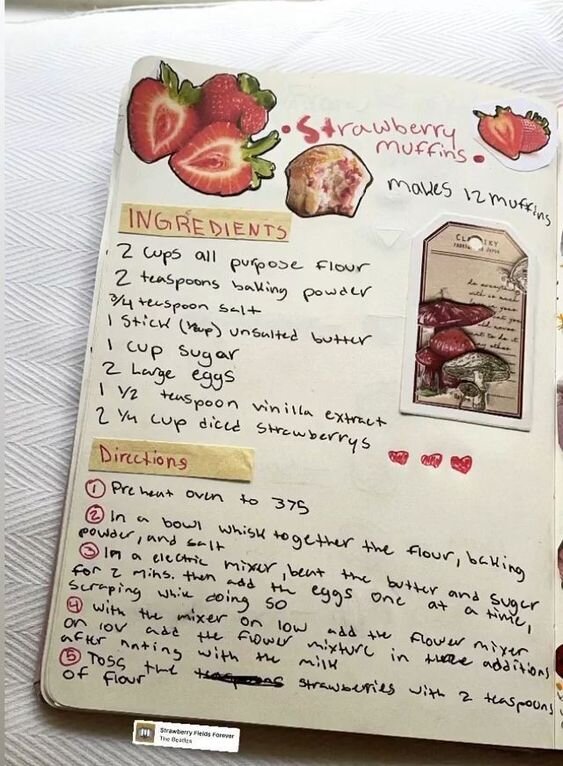 • Strawberry
muffins •
makes 12 muffins
INGREDIENTS
2 cups all purpose flour
2 teaspoons baking powder
3/4 teaspoon salt
1 Stick (½cup) unsalted butter
1 cup sugar
2 Large eggs
1 1/2 teaspoon vinilla extract
2 1/4 cup diced strawberrys
Directions
① Preheat oven to 375
② In a bowl whisk together the flour, baking
powder, and salt
③ In a electric mixer, beat the butter and suger
for 2 mins. then add the eggs one at a time,
scraping whie doing so
④ with the mixer on low add the flower mixer
on low add the flower mixture in three additions
after with the milk
⑤ Toss the strawberries with 2 teaspoons
of flour
Strawberry Fields Forever
The Beatles